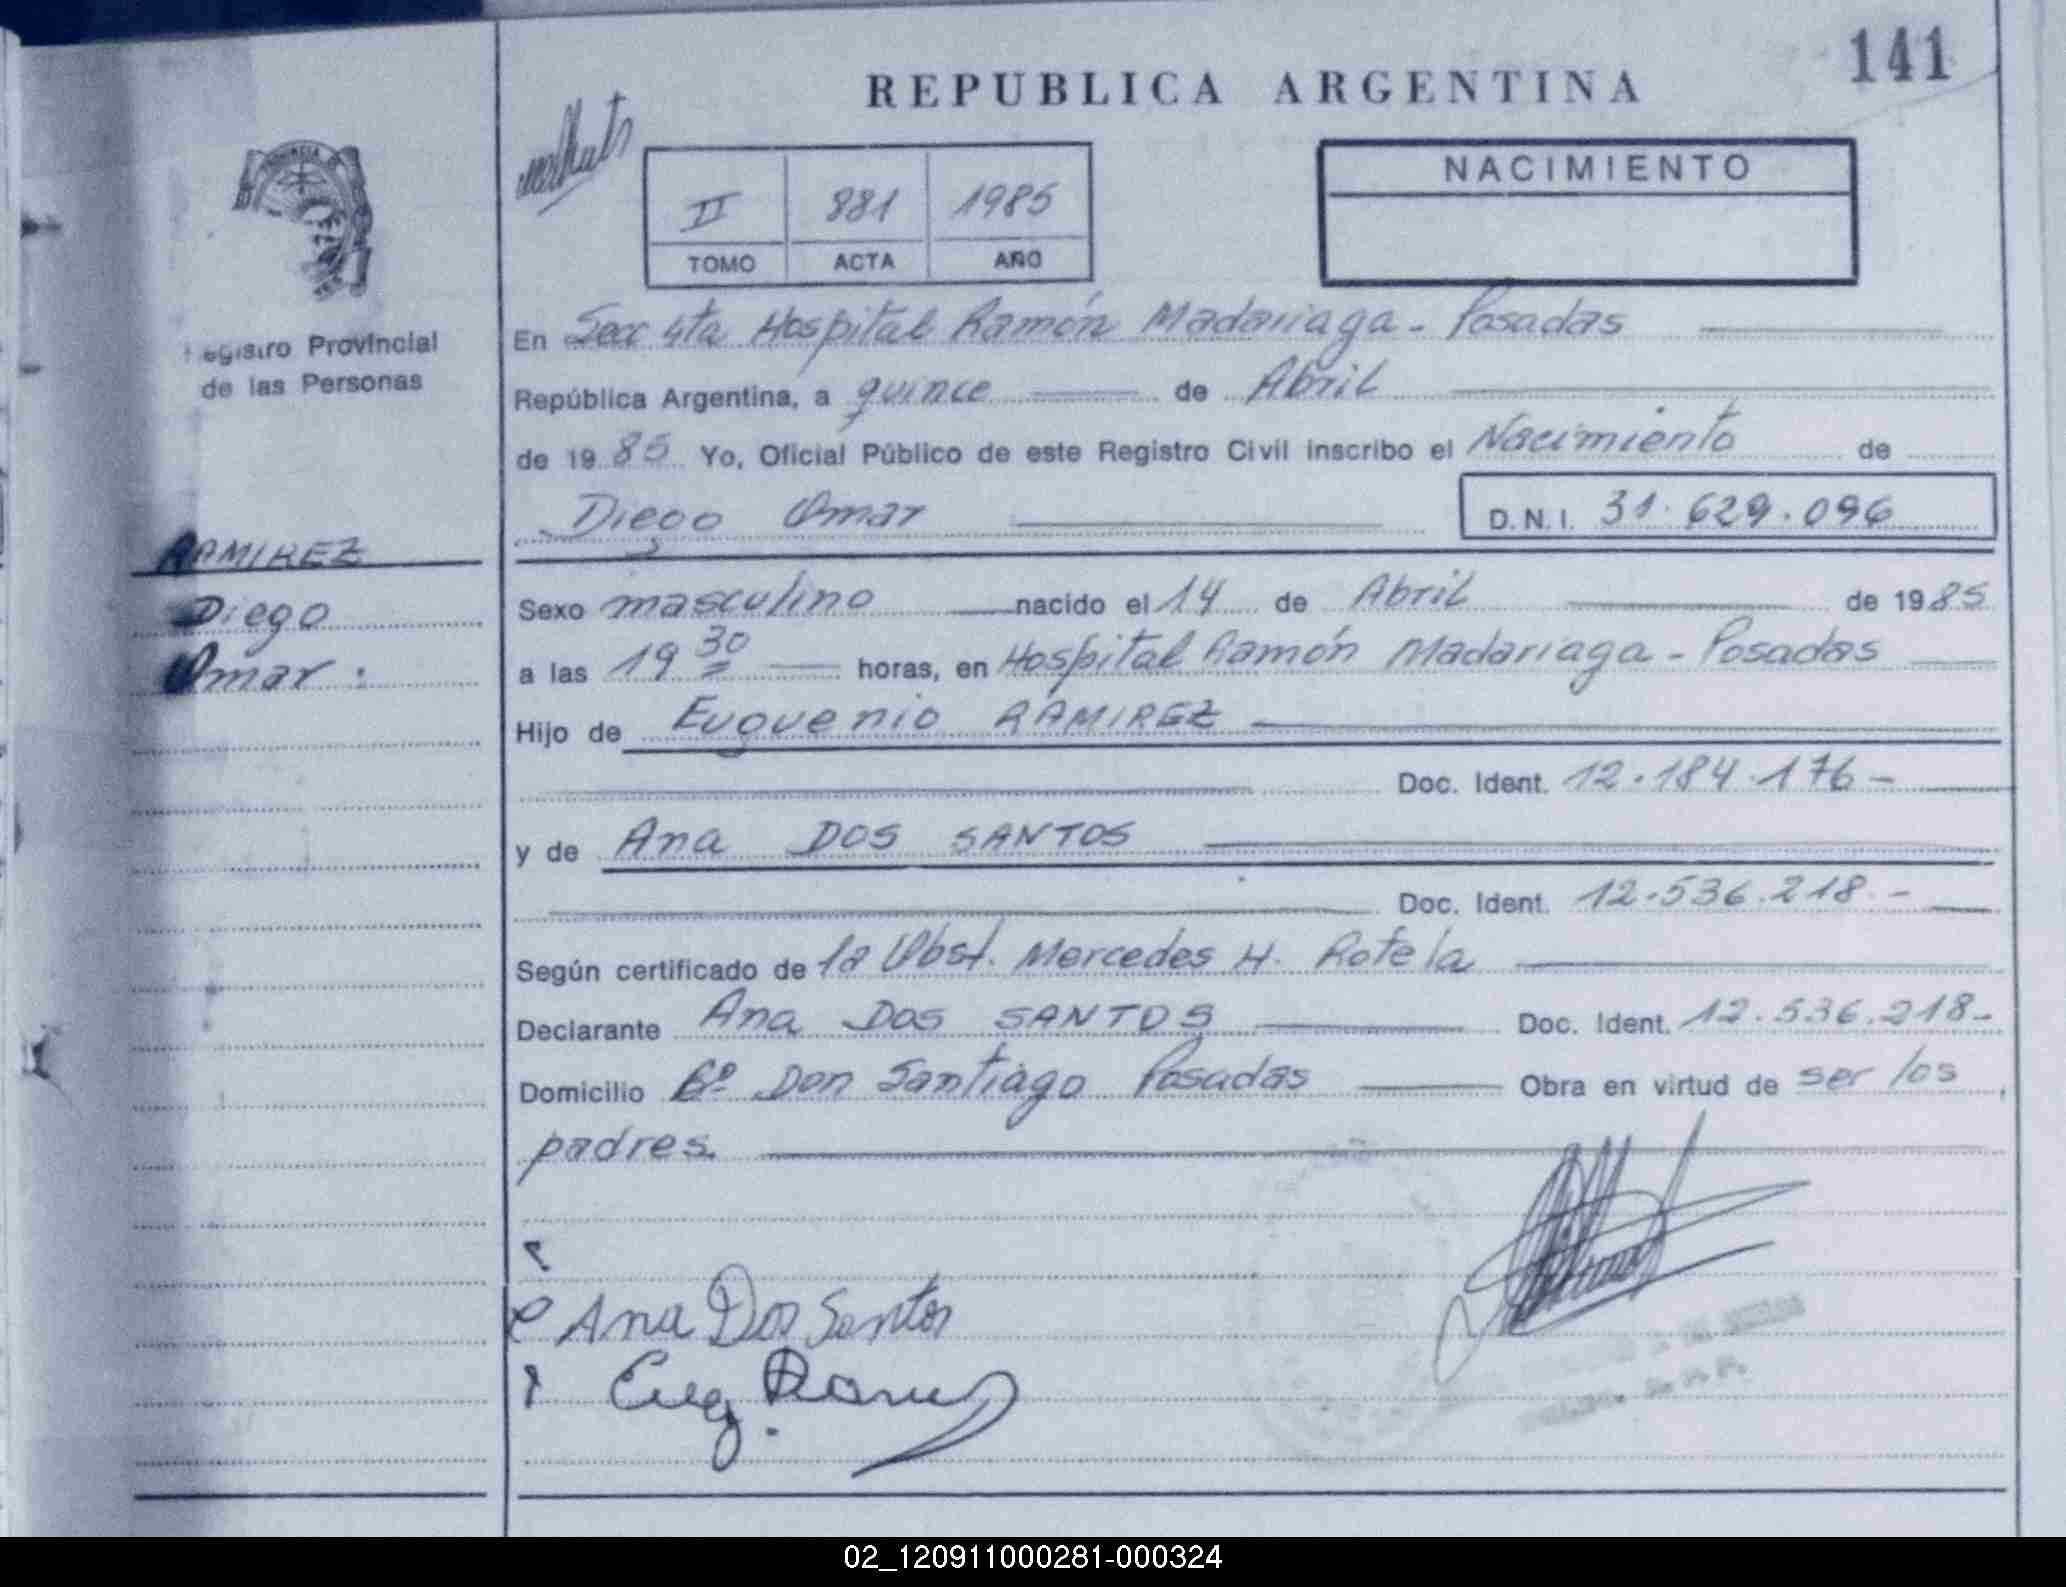 141
REPUBLICA ARGENTINA
PROVINCIA DE
NACIMIENTO
II 881 1985
TOMO ACTA AÑO
Registro Provincial
de las Personas
En Secc 4ta Hospital Ramón Madariaga - Posadas
República Argentina, a quince de Abril
de 1985 Yo, Oficial Público de este Registro Civil inscribo el Nacimiento de
Diego Omar D.N.I. 31.629.096
RAMIREZ
Diego
Omar.
Sexo masculino nacido el 14 de Abril de 1985
a las 19 30 horas, en Hospital Ramón Madariaga - Posadas
Hijo de Euguenio RAMIREZ
Doc. Ident. 12.184.176-
y de Ana DOS SANTOS
Doc. Ident. 12.536.218.-
Según certificado de la Obst. Mercedes H. Rotela
Declarante Ana DOS SANTOS Doc. Ident. 12.536.218-
Domicilio Bº Don Santiago Posadas Obra en virtud de ser los
padres.
Ana Dos Santos
Eug. Ramirez
02_120911000281-000324